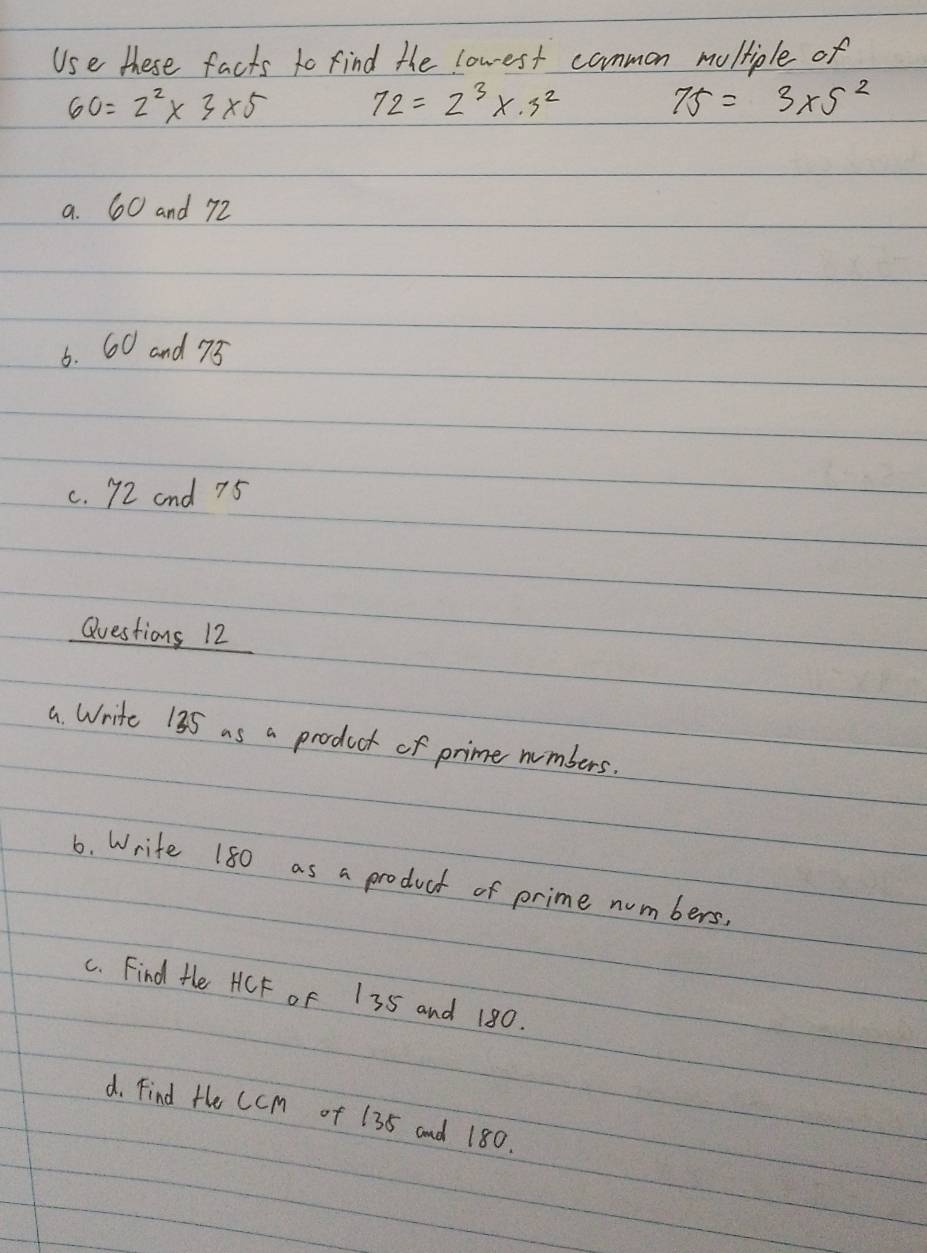 Use these facts to find the lowest common multiple of
60 = 2² × 3 × 5 72 = 2³ × . 3² 75 = 3 × 5²
a. 60 and 72
b. 60 and 75
c. 72 and 75
Questions 12
a. Write 135 as a product of prime numbers.
b. Write 180 as a product of prime numbers.
c. Find the HCF of 135 and 180.
d. Find the LCM of 135 and 180.